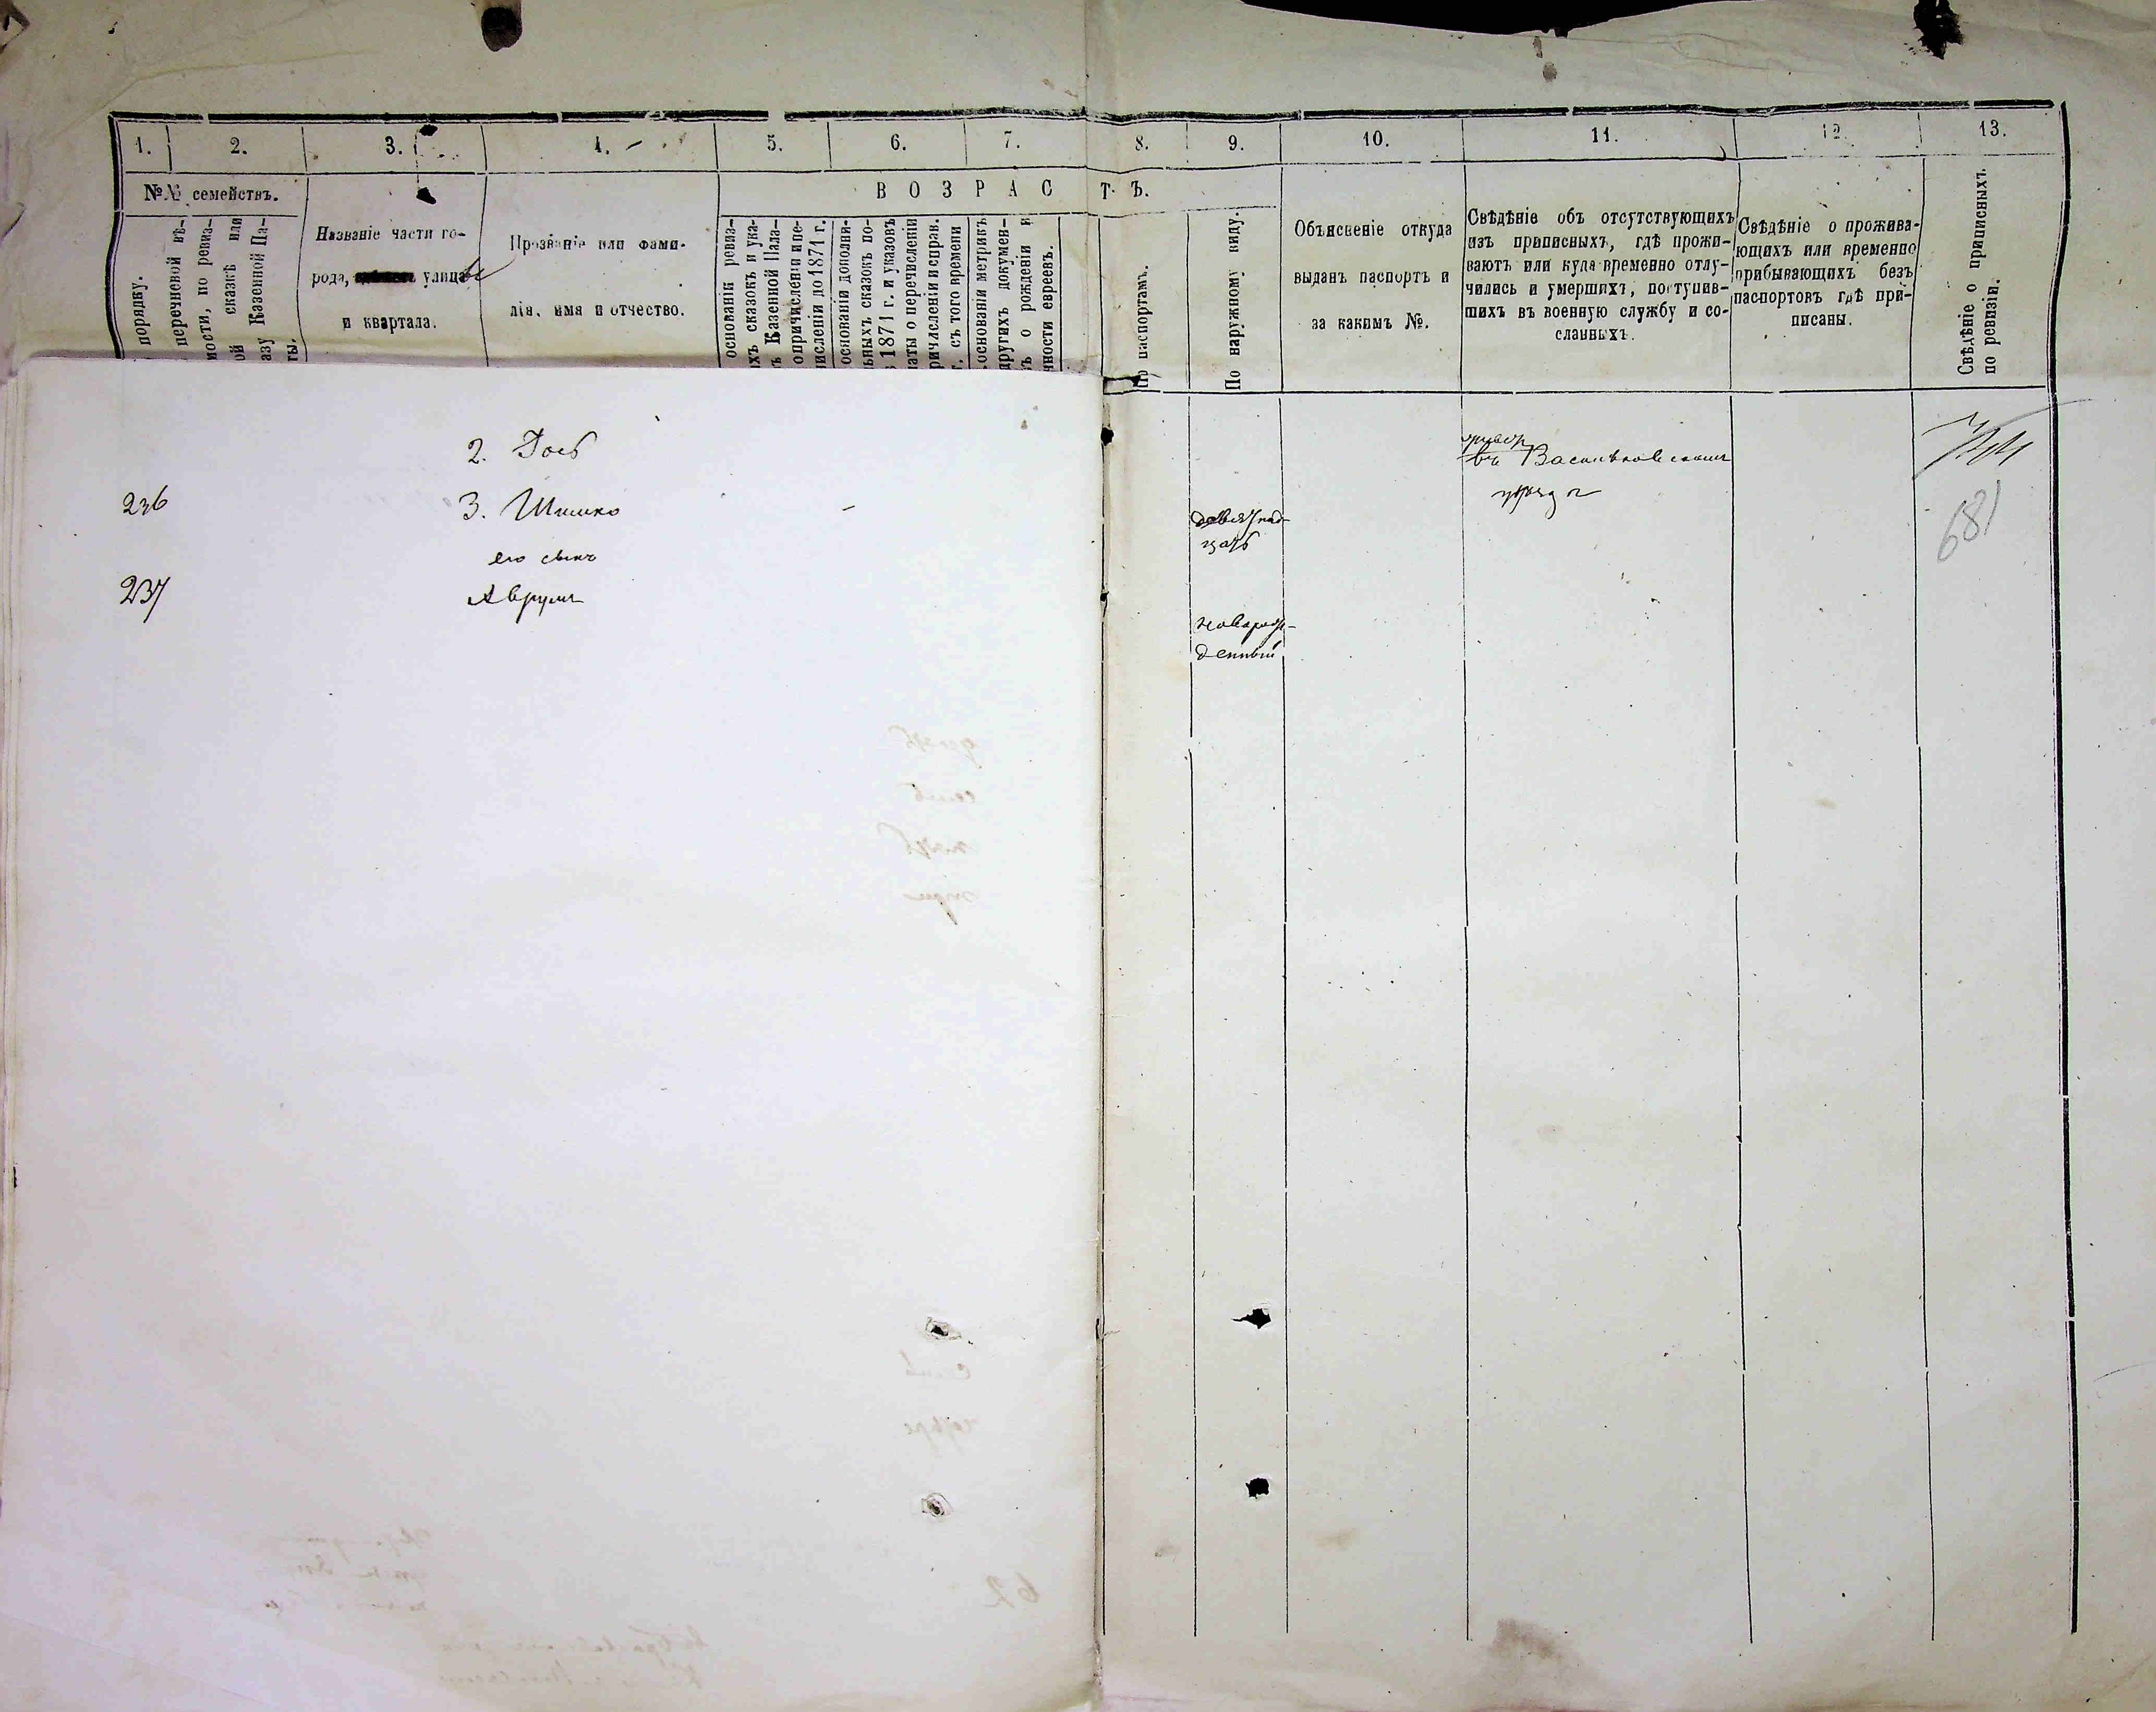 1. 2. 3. 4. 5. 6. 7. 8. 9. 10. 11. 12. 13.
№№ семействъ.
В О З Р А С Т Ъ.
порядку.
перечневой вѣ-
мости, по ревиз-
ой сказкѣ или
азу Казенной Па-
ты.
Названіе части го-
рода, улицы
и квартала.
Прозваніе или фами-
лія, имя и отчество.
основаніи ревиз-
хъ сказокъ и ука-
ъ Казенной Пала-
опричисленіи и пе-
исленіи до 1871 г.
основаніи дополни-
ьныхъ сказокъ по-
1871 г. и указовъ
латы о перечисленіи
ричисленіи и справ.
г. съ того времени
основаніи метрикъ
другихъ докумен-
ъ о рожденіи и
ности евреевъ.
По паспортамъ.
По наружному виду.
Объясненіе откуда
выданъ паспортъ и
за какимъ №.
Свѣдѣніе объ отсутствующихъ
изъ приписныхъ, гдѣ прожи-
ваютъ или куда временно отлу-
чились и умершихъ, поступив-
шихъ въ военную службу и со-
сланныхъ.
Свѣдѣніе о прожива-
ющихъ или временно
прибывающихъ безъ
паспортовъ гдѣ при-
писаны.
Свѣдѣніе о приписныхъ
по ревизіи.
2. Іось
въ Васильковскомъ
уѣздѣ
236 3. Шишко
девятнад-
цать
681
его сынъ
237 Аврумъ
новорож-
денный